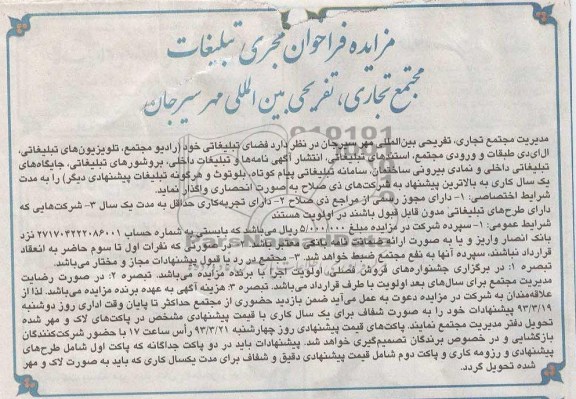 مزایده فراخوان مجری تبلیغات
مجتمع تجاری، تفریحی بین المللی مهر سیرجان
مدیریت مجتمع تجاری، تفریحی بین‌المللی مهر سیرجان در نظر دارد فضای تبلیغاتی خود (رادیو مجتمع، تلویزیون‌های تبلیغاتی،
ال‌ای‌دی طبقات و ورودی مجتمع، استندهای تبلیغاتی، انتشار آگهی نامه‌ها و تبلیغات داخلی، بروشورهای تبلیغاتی، جایگاه‌های
تبلیغاتی داخلی و نمادی بیرونی ساختمان، سامانه تبلیغاتی پیام کوتاه، بلوتوث و هرگونه تبلیغات پیشنهادی دیگر) را به مدت
یک سال کاری به بالاترین پیشنهاد به شرکت‌های ذی صلاح به صورت انحصاری واگذار نماید.
شرایط اختصاصی: ۱- دارای مجوز رسمی از مراجع ذی صلاح ۲- دارای تجربه‌کاری حداقل به مدت یک سال ۳- شرکت‌هایی که
دارای طرح‌های تبلیغاتی مدون قابل قبول باشند در اولویت هستند
شرایط عمومی: ۱- سپرده شرکت در مزایده مبلغ ۵/۰۰۰/۰۰۰ ریال می‌باشد که بایستی به شماره حساب ۲۷۱۷۰۴۲۲۲۰۸۶۰۰۱ نزد
بانک انصار واریز و یا به صورت ارائه ضمانت نامه بانکی معتبر باشد. که نفرات اول تا سوم حاضر به انعقاد
قرارداد نباشند، سپرده آنها به نفع مجتمع ضبط خواهد شد. ۳- مجتمع در رد یا قبول پیشنهادات مجاز و مختار می‌باشد.
تبصره ۱: در برگزاری جشنواره‌های فروش فصلی اولویت اجرا با برنده مزایده می‌باشد. تبصره ۲: در صورت رضایت
مدیریت مجتمع برای سال‌های بعد اولویت با طرف قرارداد می‌باشد. تبصره ۳: هزینه آگهی به عهده برنده مزایده می‌باشد. لذا از
علاقه‌مندان به شرکت در مزایده دعوت به عمل می‌آید ضمن بازدید حضوری از مجتمع حداکثر تا پایان وقت اداری روز دوشنبه
۹۳/۳/۱۹ پیشنهادات خود را به صورت شفاف برای یک سال کاری با قیمت پیشنهادی مشخص در پاکت‌های لاک و مهر شده
تحویل دفتر مدیریت مجتمع نمایند. پاکت‌های قیمت پیشنهادی روز چهارشنبه ۹۳/۳/۲۱ رأس ساعت ۱۷ با حضور شرکت‌کنندگان
بازگشایی و در خصوص برندگان تصمیم‌گیری خواهد شد. پیشنهادات باید در دو پاکت جداگانه که پاکت اول شامل طرح‌های
پیشنهادی و رزومه کاری و پاکت دوم شامل قیمت پیشنهادی دقیق و شفاف برای مدت یکسال کاری که باید به صورت لاک و مهر
شده تحویل گردد.